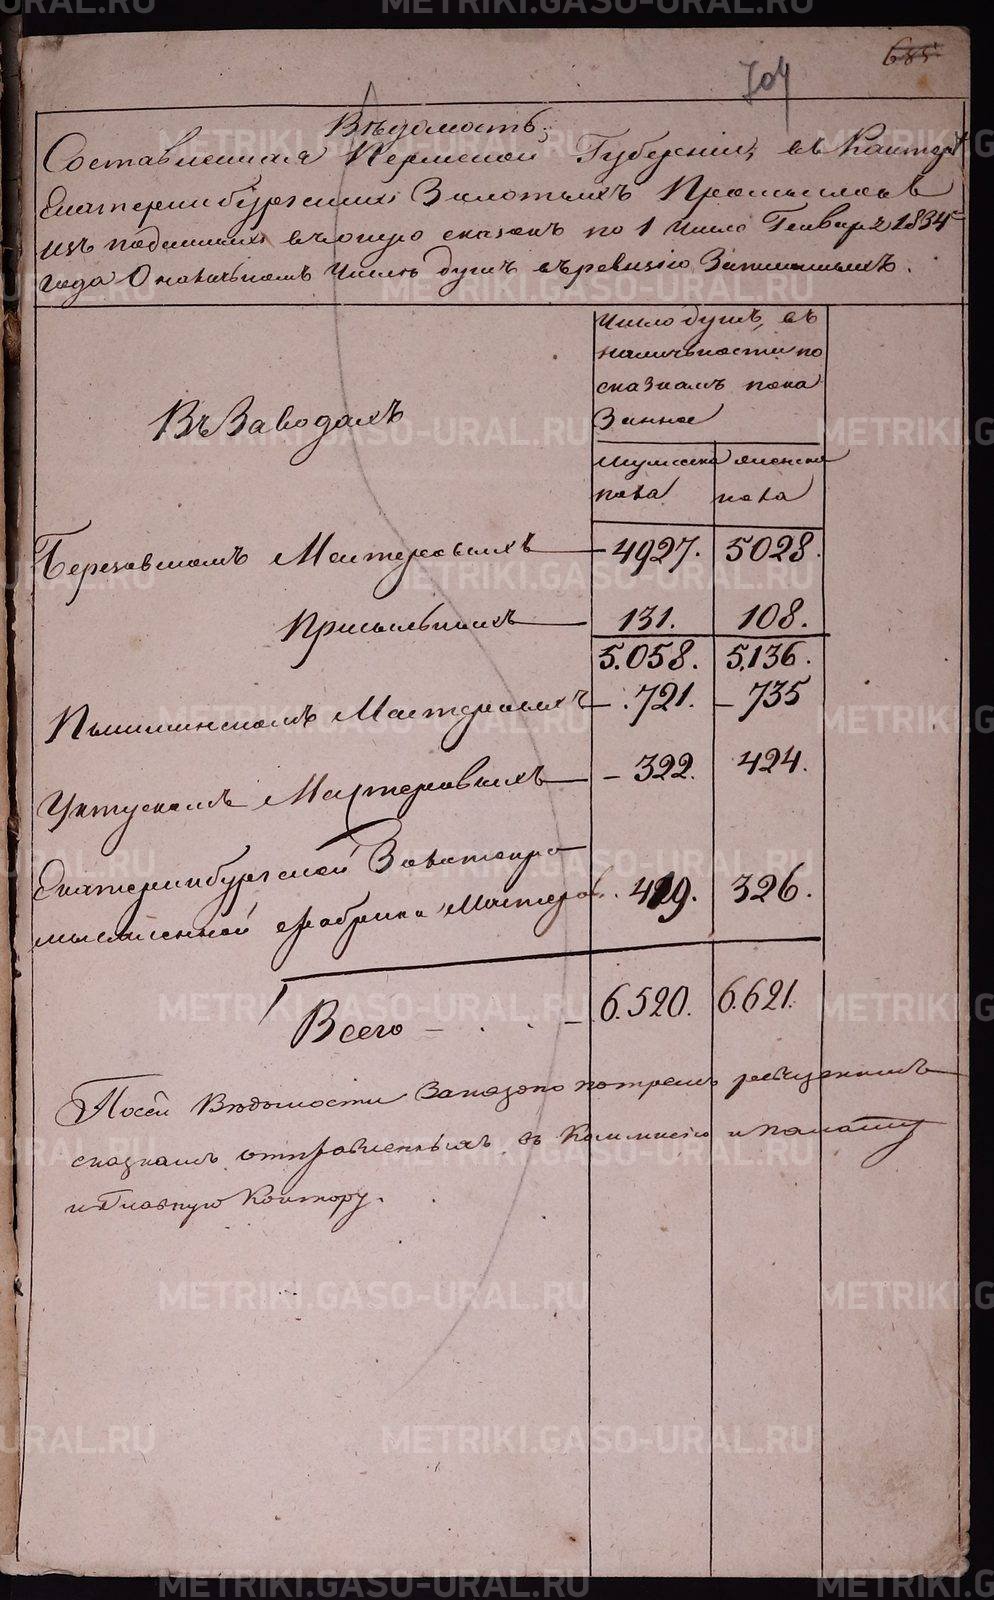 685
704
Вѣдомость,
Составленная Пермской Губерніи, въ Канторѣ
Екатеринбургскихъ Золотыхъ Промысловъ
изъ поданныхъ въ оную сказокъ по 1 число Генваря 1834
года О наличномъ числѣ душъ въ ревизію Записанныхъ.
Число душъ, въ
наличности по
сказкамъ пока
занное
Въ Заводахъ
мужеска женска
пола пола
Березовскомъ Мастеровыхъ 4927. 5028.
Присыльныхъ 131. 108.
5.058. 5.136.
Пышминскомъ Мастеровыхъ 721. 735
Уктускомъ Мастеровыхъ 322. 424.
Екатеринбургской Золотопро
мысленной Фабрики Мастеров. 419. 326.
Всего 6.520. 6.621.
По сей Вѣдомости
сказкамъ отправленнымъ въ Коммисію и палату
и Главную Контору.
METRIKI.GASO-URAL.RU